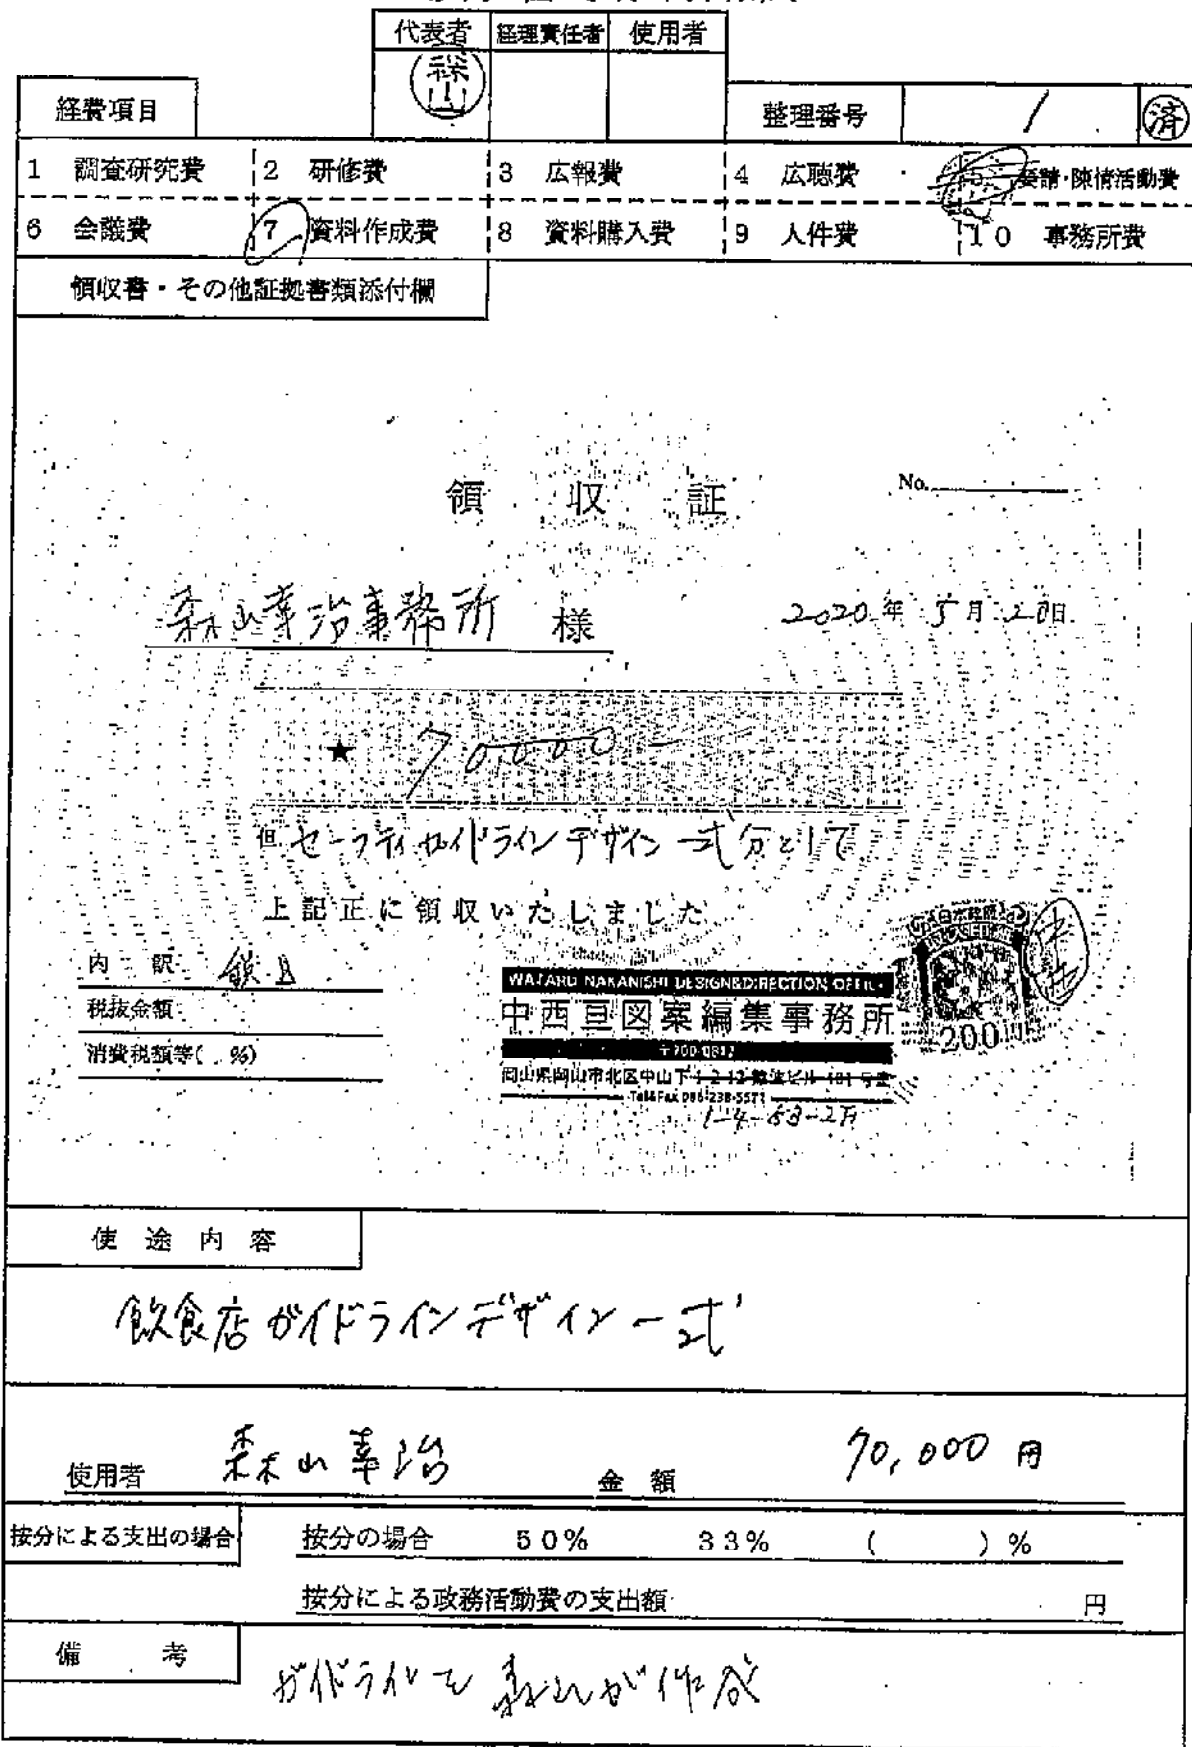 代表者 経理責任者 使用者
森山
経費項目
整理番号 1 済
1 調査研究費 2 研修費 3 広報費 4 広聴費 5 要請・陳情活動費
6 会議費 7 資料作成費 8 資料購入費 9 人件費 10 事務所費
領収書・その他証拠書類添付欄
領収証
No.
森山幸治事務所 様
2020年 5月 20日
★ 70,000-
但 セーフティガイドラインデザイン一式分として
上記正に領収いたしました
内訳
税抜金額
消費税額等( %)
WATARU NAKANISHI DESIGN&DIRECTION OFFICE
中西亘図案編集事務所
〒700-0817
岡山県岡山市北区中山下1-2-12
Tel&Fax 086-238-5571
1-4-53-2F
200
使途内容
飲食店ガイドラインデザイン一式
使用者 森山幸治 金額 70,000 円
按分による支出の場合
按分の場合 50% 33% ( ) %
按分による政務活動費の支出額 円
備考
ガイドラインを森山が作成